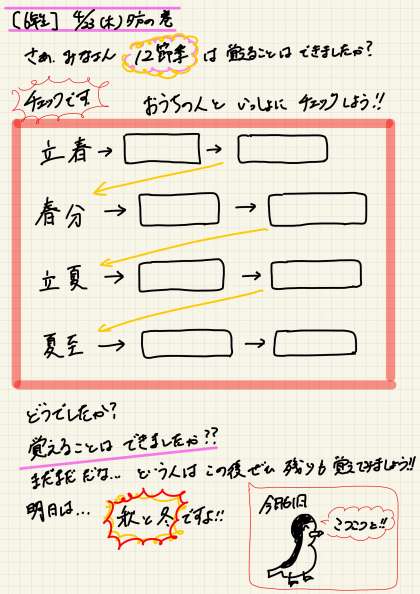 [6年生] 4/23(木) 夕方の巻
さぁ、みなさん 12節季 は 覚えることは できましたか?
チェックです
おうちの人と いっしょに チェックしよう!!
立春→ →
春分 → →
立夏→ →
夏至 → →
どうでしたか?
覚えることは できましたか??
まだまだ だな... という人は この後 ぜひ 残りも 覚えてみましょう!!
明日は... 秋と冬ですよ!!
今日も1日
こつこつと!!